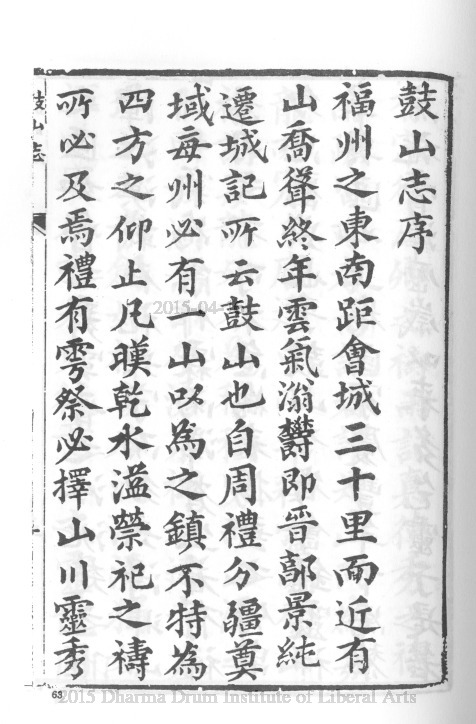 鼓山志序
福州之東南距會城三十里而近有
山喬聳終年雲氣滃欝即晉郭景純
遷城記所云鼓山也自周禮分疆奠
域每州必有一山以為之鎮不特為
四方之仰止凡暵乾水溢禜祀之禱
所必及焉禮有雩祭必擇山川靈秀
鼓山志
63
2015 Dharma Drum Institute of Liberal Arts